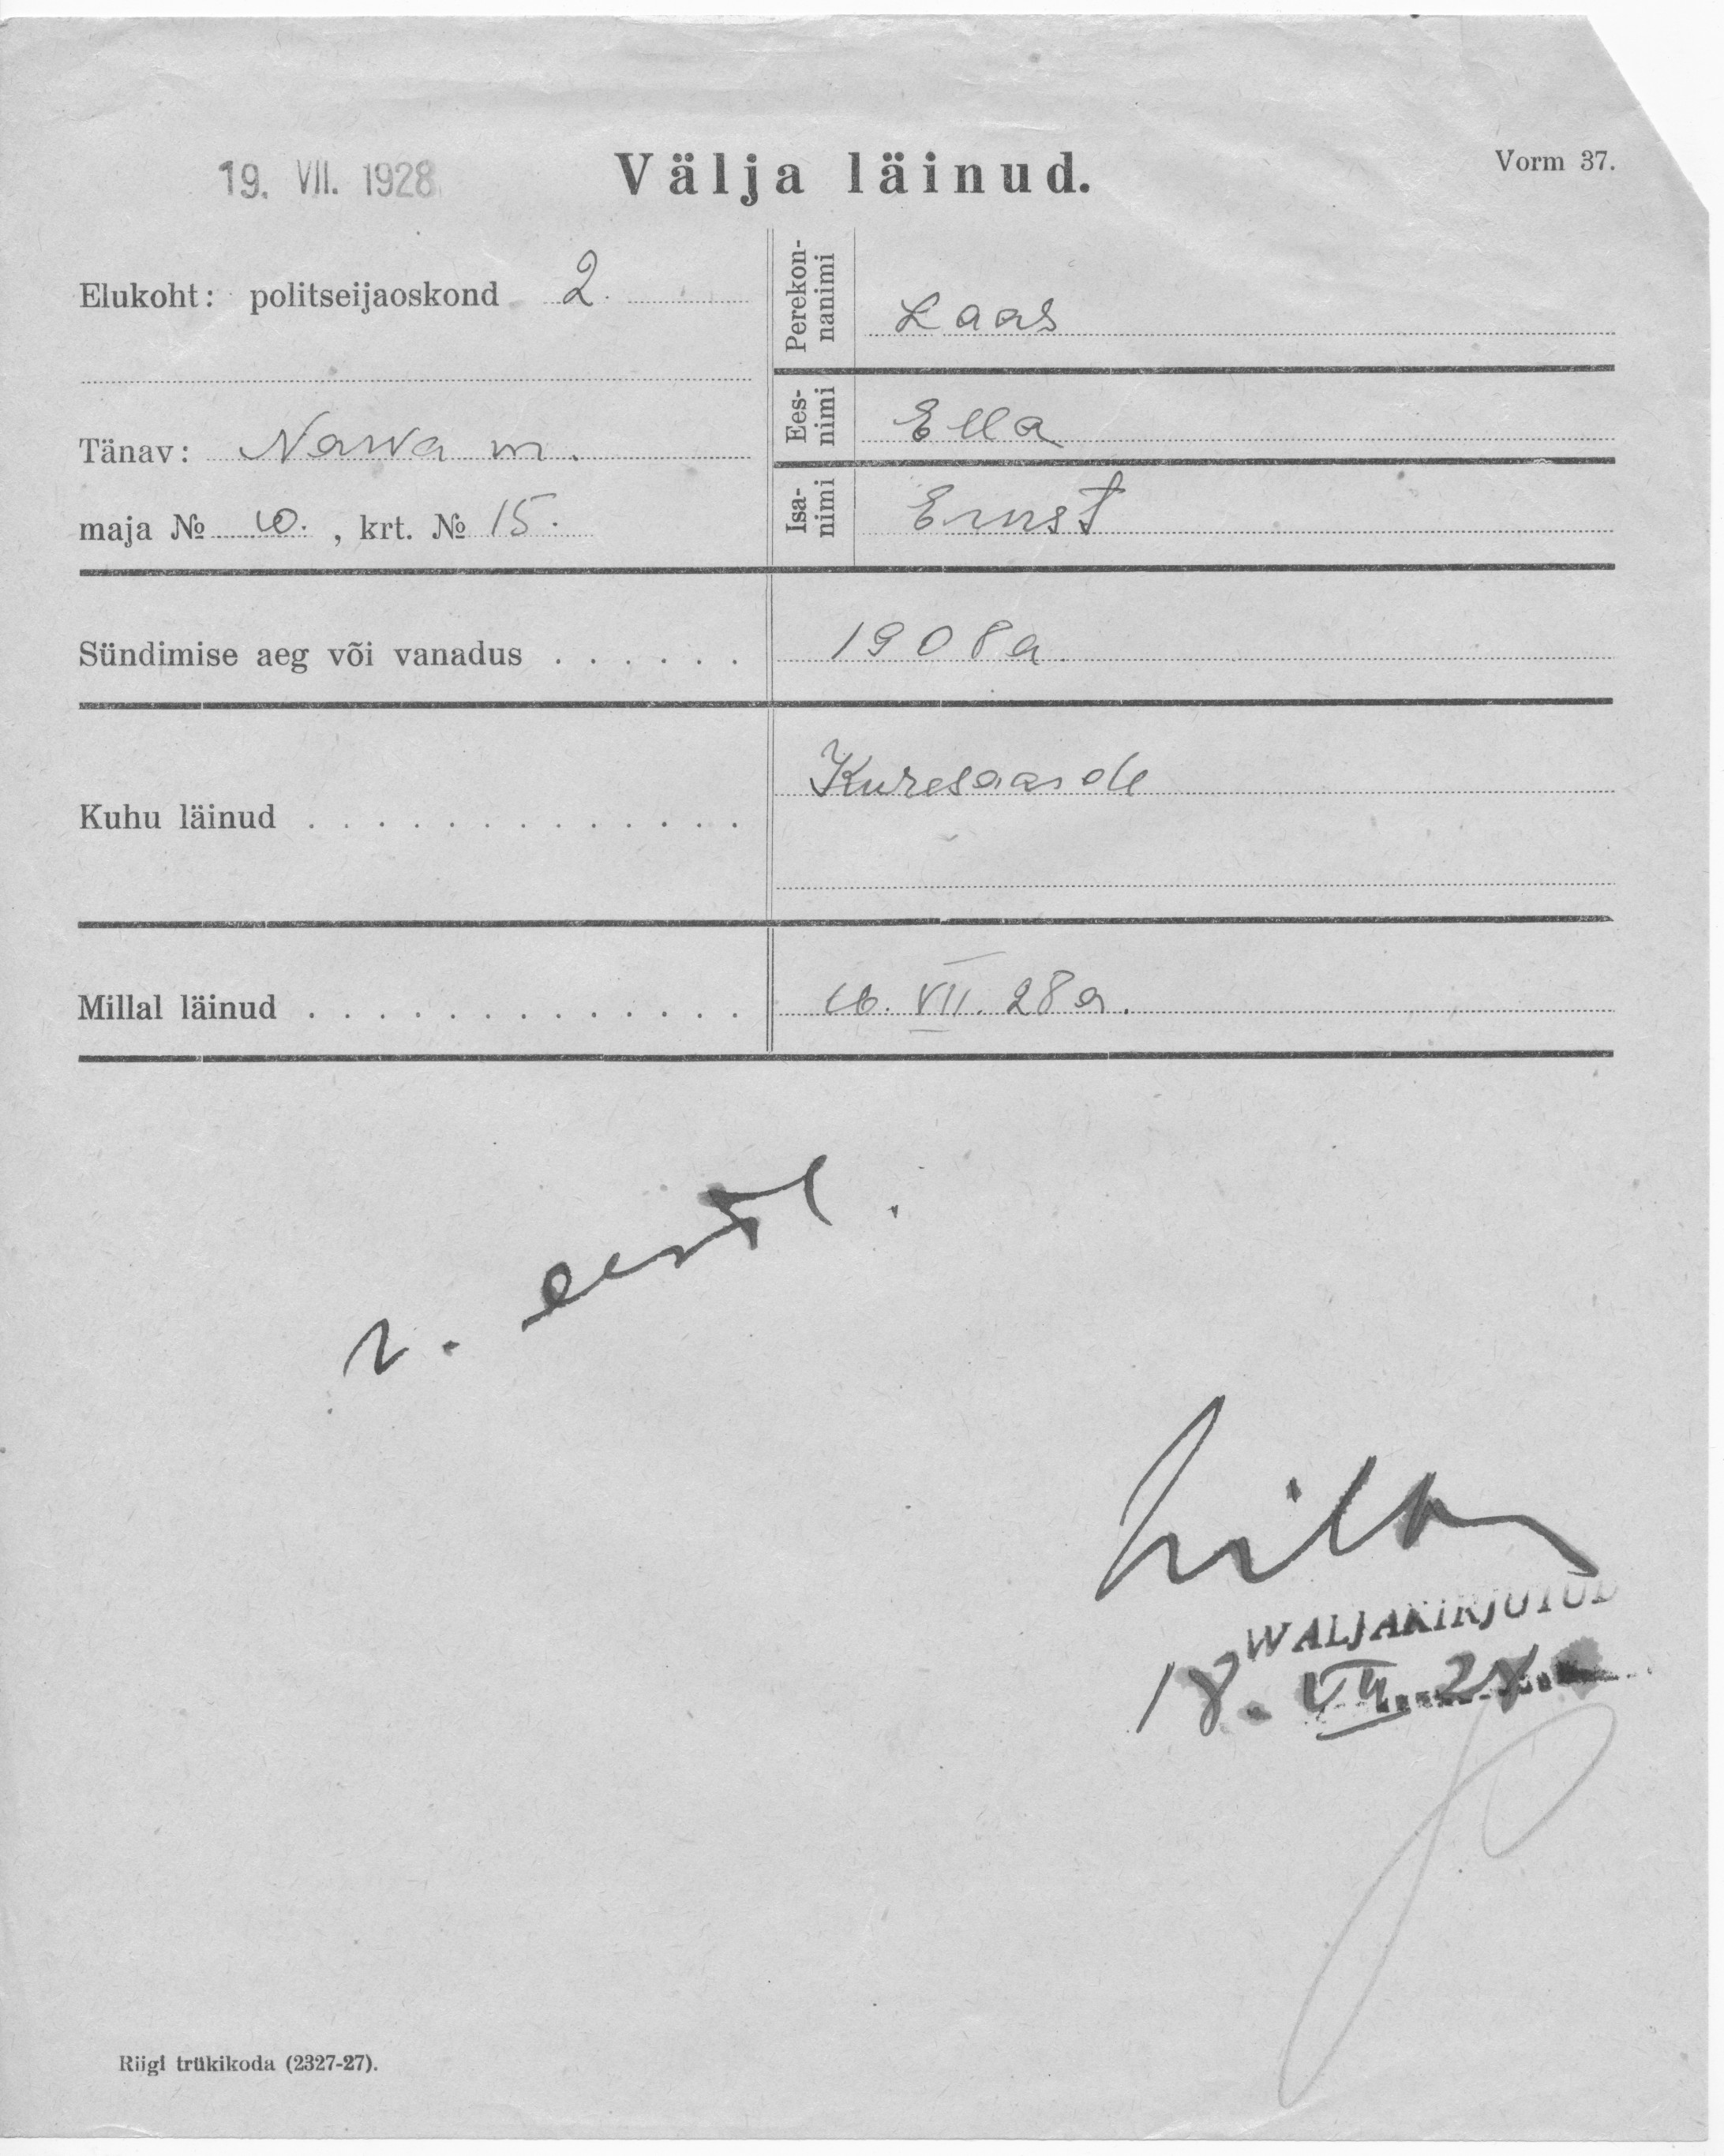 19. VII. 1928
Välja läinud.
Vorm 37.
Elukoht: politseijaoskond 2.
Tänav: Narva m.
maja № 10. , krt. № 15.
Perekon-
nanimi
Laas
Ees-
nimi
Ella
Isa-
nimi
Ernst
Sündimise aeg või vanadus . . . . . .
1908 a.
Kuhu läinud . . . . . . . . . . . . .
Kuresaarde
Millal läinud . . . . . . . . . . . . .
16. VII. 28 a.
WALJAKIRJUTUD
18. VII. 28
Riigi trükikoda (2327-27).